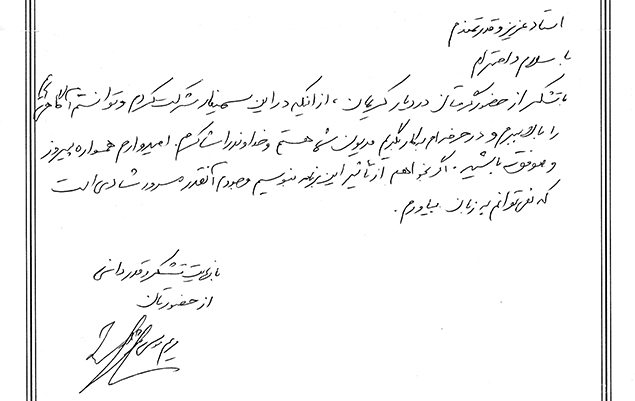 استاد عزیز و قدرتمندم
با سلام و احترام
با تشکر از حضور گرمتان در دیار کریمان، از اینکه در این سمینار شرکت کردم و توانستم آگاهی‌ام
را بالا ببرم و در حرفه‌ام بکار بگیرم مدیون شما هستم و خداوند را شاکرم. امیدوارم همواره پیروز
و موفق باشید. اگر بخواهم از تأثیر این برنامه بنویسم وجودم آنقدر مسرور و شادی است
که نمی‌توانم به زبان بیاورم.
با نهایت تشکر و قدردانی
از حضورتان